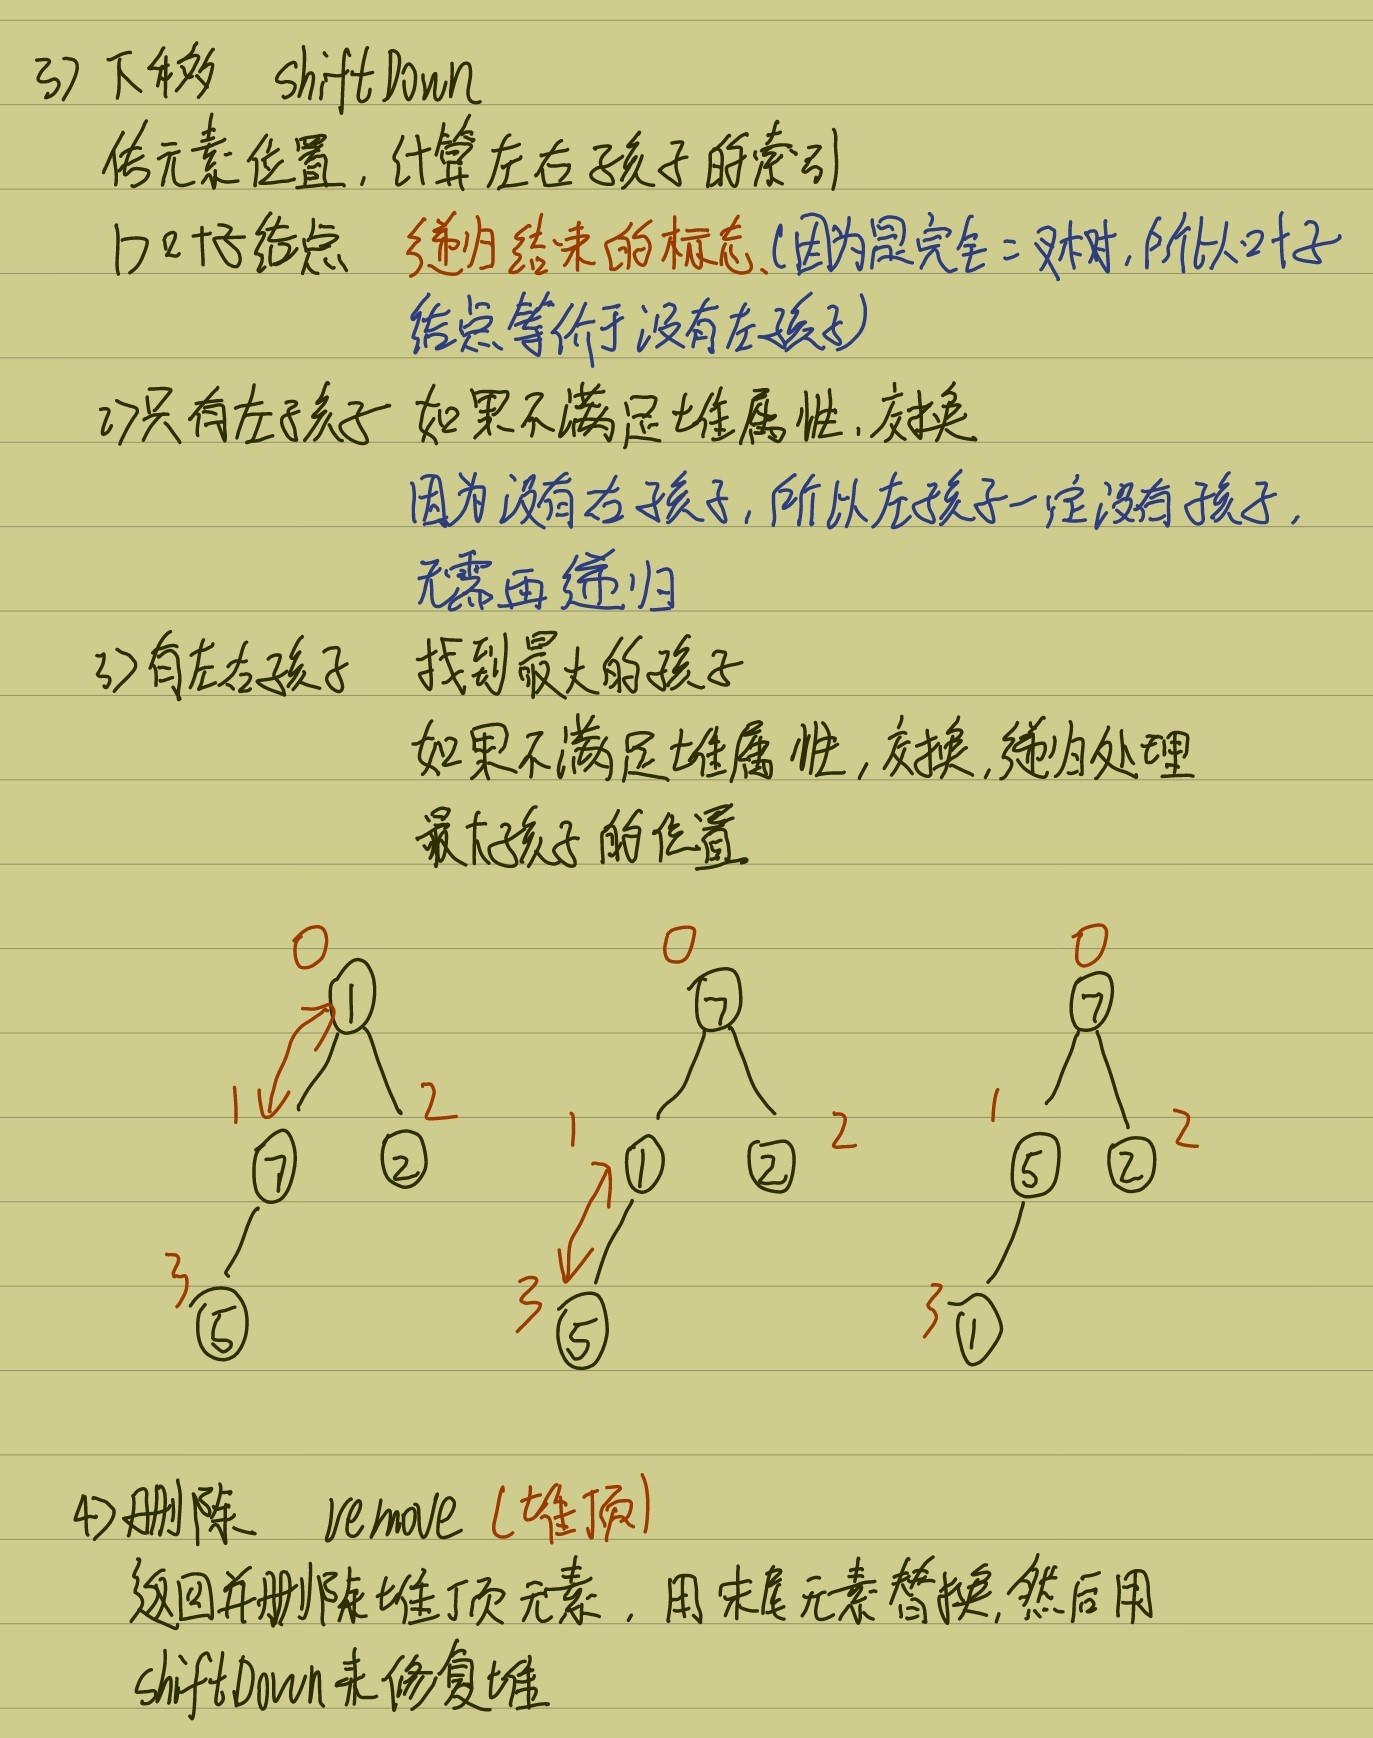 3) 下移 shiftDown
传元素位置,计算左右孩子的索引
1>叶子结点 递归结束的标志.(因为是完全二叉树,所以叶子
结点等价于没有左孩子)
2>只有左孩子 如果不满足堆属性,交换
因为没有右孩子,所以左孩子一定没有孩子,
无需再递归
3>有左右孩子 找到最大的孩子
如果不满足堆属性,交换,递归处理
最大孩子的位置
0 0 0
1 7 7
1 2 1 2 1 2
7 2 1 2 5 2
3 3 3
5 5 1
4>删除 remove (堆顶)
返回并删除堆顶元素,用末尾元素替换,然后用
shiftDown来修复堆